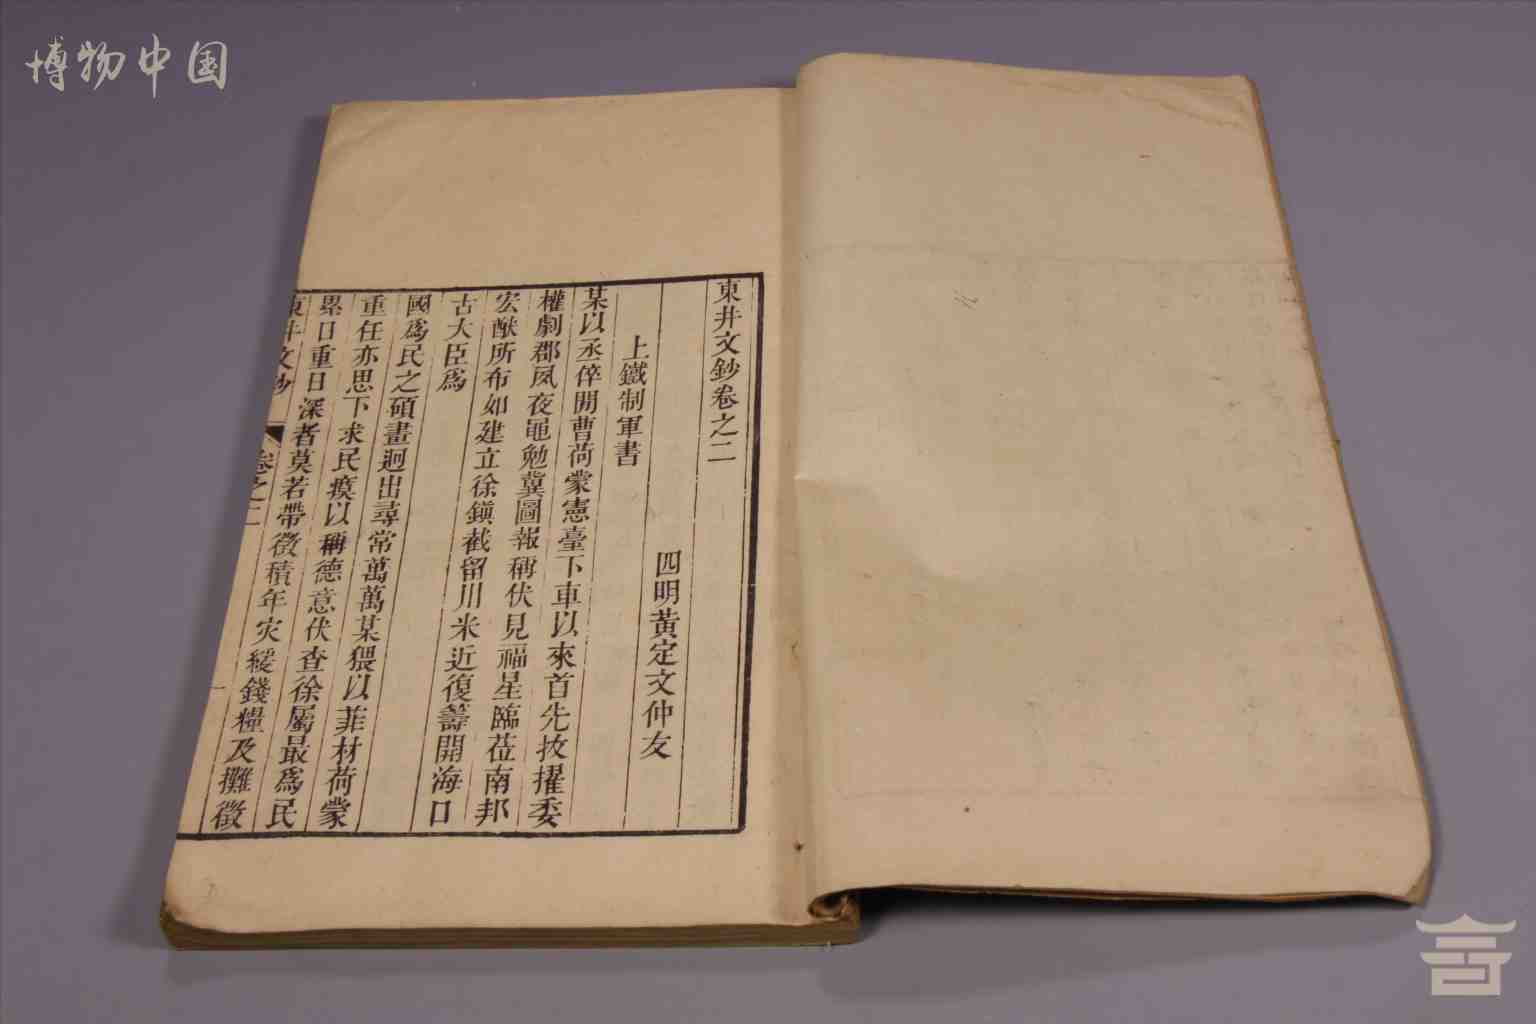 博物中国
東井文鈔卷之二
四明黃定文仲友
上鐵制軍書
某以丞倅開曹荷蒙憲臺下車以來首先拔擢委
權劇郡夙夜黽勉冀圖報稱伏見福星臨莅南邦
宏猷所布如建立徐鎮截留川米近復籌開海口
古大臣爲
國爲民之碩畫迥出尋常萬萬某猥以菲材荷蒙
重任亦思下求民瘼以稱德意伏查徐屬最爲民
累日重日深者莫若帶徵積年灾緩錢糧及攤徵
東井文鈔
卷之二
一